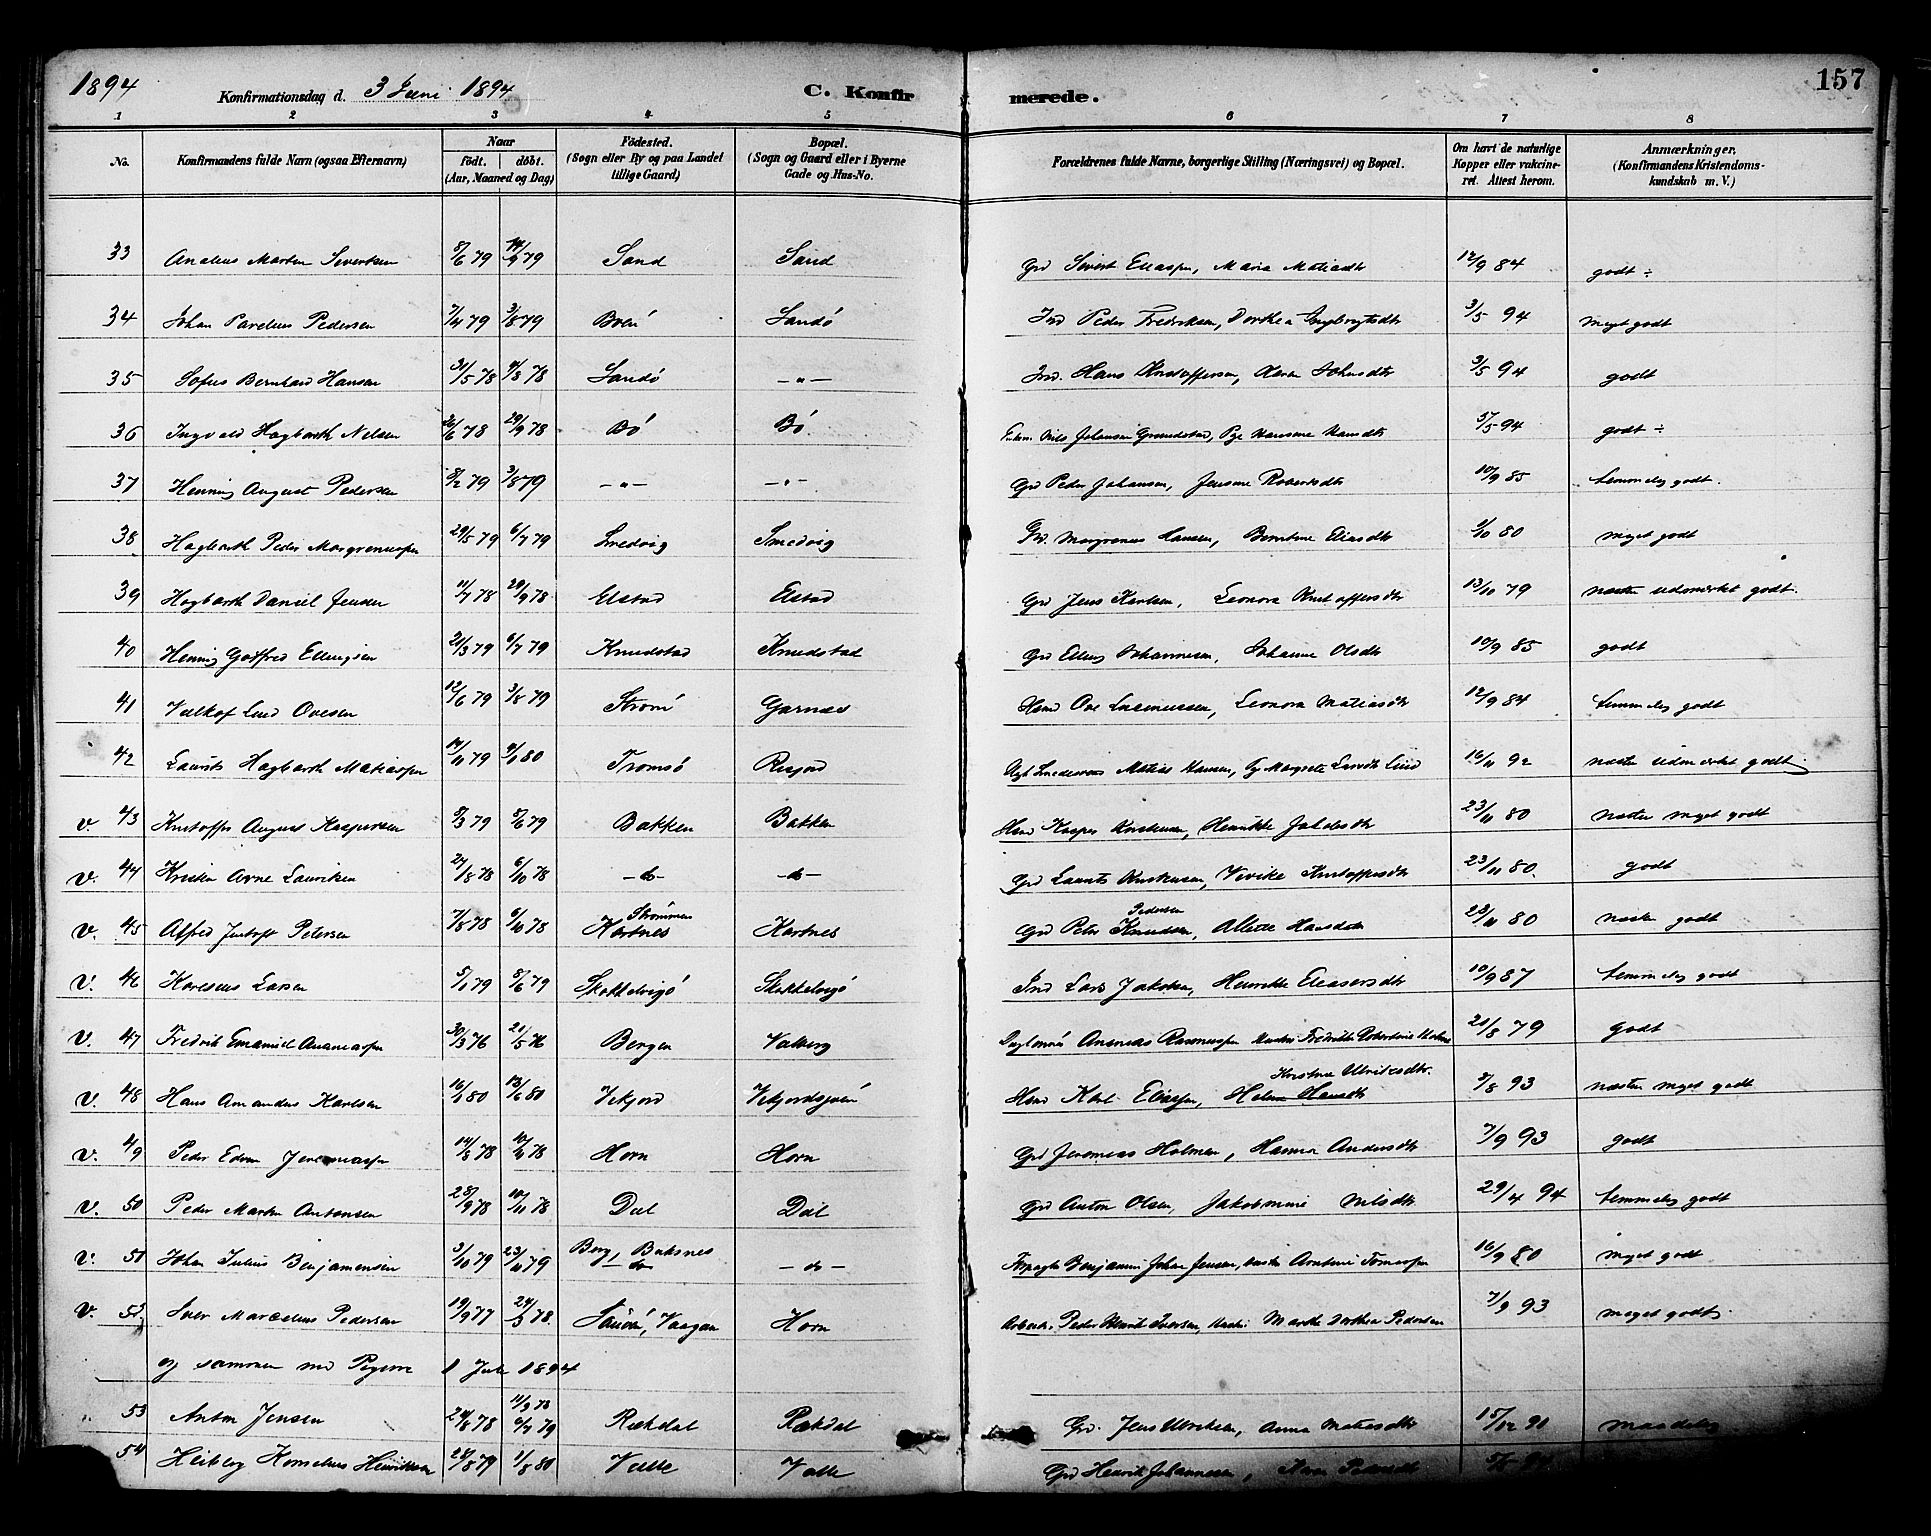 1894 Konfirmationsdag d. 3 Juni 1894 C. Konfir merede. 157
1 2 3 4 5 6 7 8
No. Konfirmandens fulde Navn (ogsaa Efternavn) Naar födt. döbt. (Aar, Maaned og Dag) Födested. (Sogn eller By og paa Landet tillige Gaard) Bopæl. (Sogn og Gaard eller i Byerne Gade og Hus-No. Forældrenes fulde Navne, borgerlige Stilling (Næringsvei) og Bopæl. Om havt de naturlige Kopper eller vakcineret. Attest herom. Anmærkninger, (Konfirmandens Kristendomskundskab m. V.)
33 Analius Martin Sivertsen 8/6 79 79 Sand Sand Grd Sivert Eliassen, Maria Matiasdtr 12/9 84 godt ÷
34 Johan Parelius Pedersen 7/4 79 3/8 79 Sandö Ind Peder Fredriksen, Dorthea Ingebrigtsdtr 3/5 94 meget godt
35 Sofus Bernhard Hansen 31/5 78 4/8 78 Sandö -"- Ind. Hans Kristoffersen, Karen Johnsdtr 3/5 94 godt
36 Ingvald Hagbarth Nilsen 26/6 78 29/9 78 Bö Bö Nils Johansen Grundstad, Pge Hansine Hansdtr 5/5 94 godt ÷
37 Henning August Pedersen 8/2 79 3/8 79 -"- -"- Grd Peder Johansen, Jensine Robertsdtr 10/9 85 temmelig godt.
38 Hagbarth Peder Morgrensen 29/5 79 6/7 79 Smedvig Smedvig Grd. Hansen, Berntine Eliasdtr /10 80 meget godt
39 Hagbarth Daniel Jensen 11/7 78 29/9 78 Elstad Elstad Grd Jens Karlsen, Leonora Kristoffersdtr 13/10 79 næsten udmærket godt.
40 Henning Godfred Ellingsen 21/3 79 6/7 79 Knudstad Knudstad Grd Elling Johannesen, Johanna Olsdtr 10/9 85 godt
41 Ovesen 12/6 79 3/8 79 Ström Garnæs Hmd Ove Rasmussen, Leonora Matiasdtr 12/9 84 temmelig godt
42 Laurits Hagbarth Matiassen 79 80 Tromsö Resjord Matias Hansen, og Margrete Larsdtr Lind 16/11 92 næsten udmærket godt
v. 43 Kristoffer August Kaspersen 8/3 79 8/6 79 Bakken Bakken Hmd Kasper Kristensen, Henrikke Jakobsdtr 23/11 80 næsten meget godt
v. 44 Kristen Arne Lauritsen 27/8 78 6/10 78 -do- -do- Grd Laurits Kristensen, Vivike Kristoffersdtr 23/11 80. godt
v. 45 Alfred Petersen 7/8 78 6/10 78 Strömmen Kartnes Kartnes Grd Peter Pedersen Knudsen, Alette Hansdtr 23/11 80 næsten godt
v. 46 Karelius Larsen 5/1 79 8/6 79 Skottelvigö Skottelvigö Ind Lars Jakobsen, Henrikke Eleasersdtr 10/9 87 temmelig godt
v. 47 Fredrik Emanuel Ananiassen 30/3 76 21/5 76 Bergen Valberg Ananias Rasmussen 21/8 79 godt
v. 48 Hans Amandus Karlsen 16/ 80 13/6 80 Vikjord Vikjordsjöen Hmd Karl Eliassen, Kristine Ulriksdtr. Helene Hansdtr 3/8 93 næsten meget godt
v. 49 Peder Edvin Jeremiassen 14/3 78 78 Horn Horn Grd Jeremias Holmen, Hanna Andersdtr 7/9 93 godt
v. 50 Peder Martin Antonsen 28/9 78 10/11 78 Dal Dal Grd Anton Olsen, Jakobmine Nilsdtr 29/4 94 temmelig godt
v. 51 Johan Julius Benjaminsen 3/10 79 23/10 79 Borg, Buksnes -do- -do- Forpagter Benjamin Johan Jensen, hustru Arntine Tomassen 16/9 80 meget godt
v. 52 Iver Marcelius Pedersen 19/9 77 24/ 78 Sandö, Vaagan Horn Arbeider Peder Henrik Iversen, hustru Marthe Dorthea Pedersen 7/9 93 meget godt
og sammen med Pigerne 1 Juli 1894
53 Anton Jensen 24/8 78 11/9 78 6/7 79 Rækdal Rækdal Grd. Jens Ulriksen, Anna Matiasdtr 15/12 91 maadelig
54 Heiberg Kornelius Henriksen 28/8 79 1/8 80 Valle Valle Grd Henrik Johannesen, Karen Pedersdtr 5/5 94